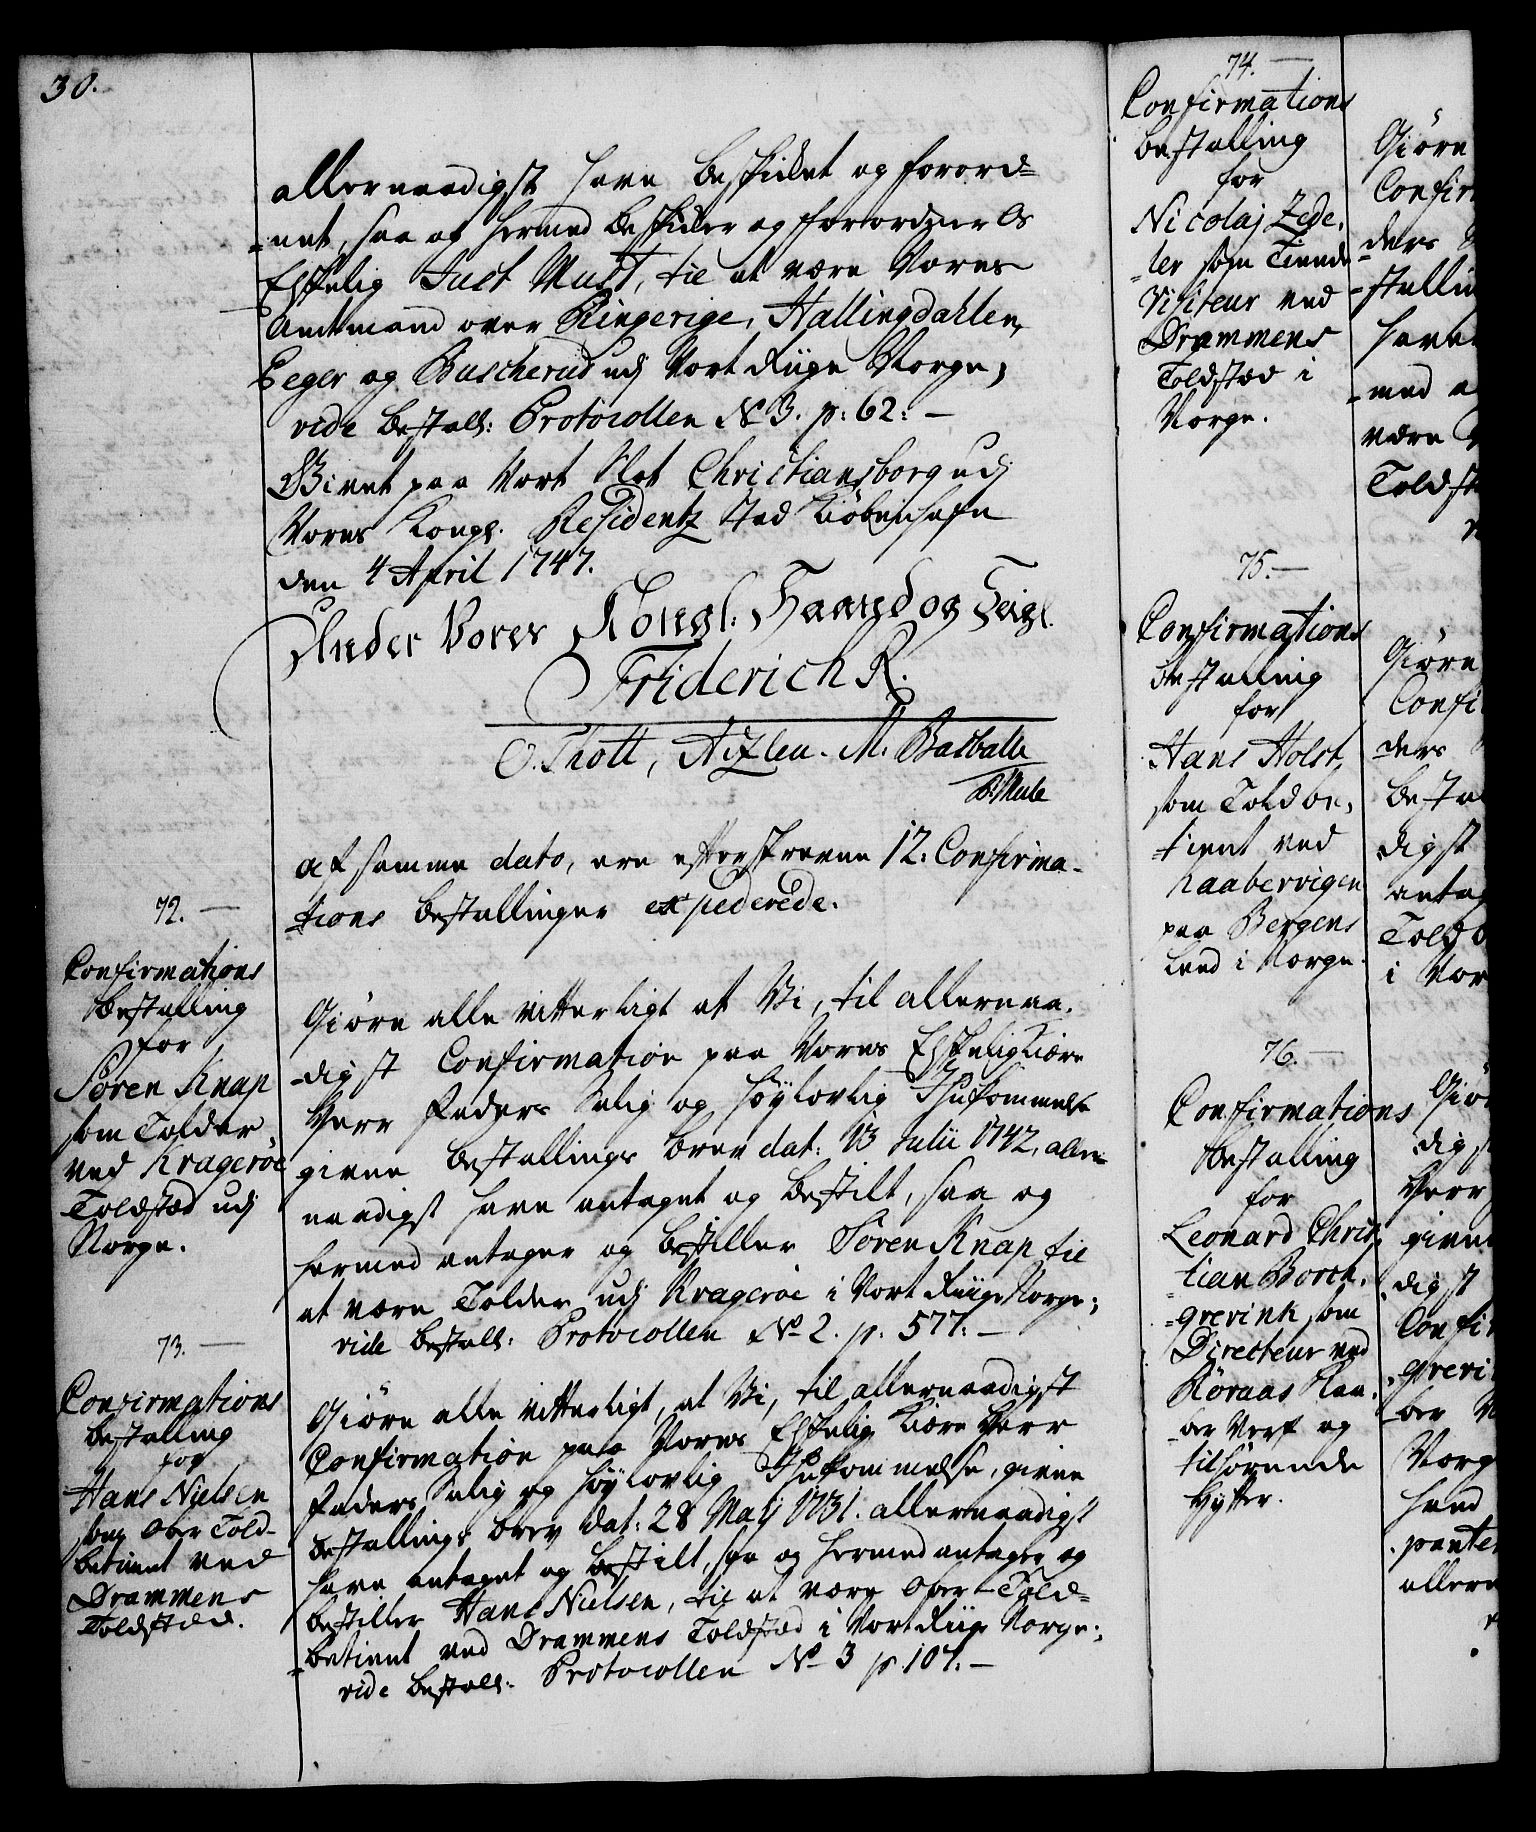 30.
allernaadigst have beskicket og forord=
=net, saa og hermed beskicker og forordner Os
Elskelig Just Must, til at være Vores
Amtmand over Ringerige, Hallingdahlen,
Eeger og Buscherud udj Vort Riige Norge;
vide Bestall: Protocollen No 3. p: 62: —
Givet paa Vort Slot Christiansborg udj
Vores Kongl. Residentz Stad Kiøbenhafn
den 4 April 1747.
Under Vores Kongl: Haand og Seigl.
Friderich R.
O. Thott, M. Barballe
af samme dato, ere efterskrevne 12: Confirma-
tions Bestallinger expederede.
72. —
Confirmations
Bestalling
for
Søren Knap
som Tolder
ved Krageröe
Toldsted udj
Norge.
Giöre alle vitterligt at Vi, til allernaa-
-digst Confirmation paa Vores Elskelig Kiære
Herr Faders Salig og Høylovlig Ihukommelse
givne Bestallings brev dat: 13 Julii 1742, aller=
naadigst have antaget og bestilt, saa og
hermed antager og bestiller Søren Knap til
at være Tolder udj Krageröe i Vort Riige Norge;
vide Bestall: Protocollen No 2. p. 577. —
73. —
Confirmations
Bestalling
for
Hans Nielsen
som Ober Told-
betient ved
Drammens
Toldsted.
Giöre alle vitterligt, at Vi, til allernaadigst
Confirmation paa Vores Elskelig Kiære Herr
Faders Salig og Høylovlig Ihukommelse, givne
Bestallings brev dat: 28 Maij 1731. allernaadigst
have antaget og bestilt, saa og hermed antager og
bestiller Hans Nielsen, til at være Ober Told=
=betient ved Drammens Toldsted i Vort Riige Norge;
vide Bestall: Protocollen No 3 p 107. —
74. —
Confirmations
Bestalling
for
Nicolaj Zede-
-ler som Tiende
Visiteur ved
Drammens
Toldsted i
Norge.
75. —
Confirmations
Bestalling
for
Hans Holst,
som Toldbe-
-tient ved
Kaabervigen
paa Bergens
Leed i Norge.
76. —
Confirmations
Bestalling
for
Leonard Chris-
tian Borch-
=grevink som
Directeur ved
Röraas Kaa-
-ber Verk og
tilhørende
Hytter.
Giöre
Confir
-ders
=stallin
have
=med a
være
Toldst
Giöre
Confi
-ders
Besta
digst
antag
Toldb
i Nor
Giör
digs
Herr
givne
digst
Confir
=grevi
-ber
Norg
hand
panter
allern